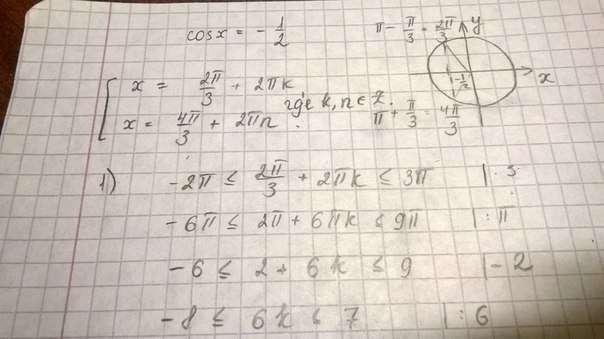 cos x = - 1/2
π - π/3 = 2π/3
y
x
- 1/2
x = 2π/3 + 2πk
где k, n ∈ Z.
x = 4π/3 + 2πn
π + π/3 = 4π/3
1) -2π ≤ 2π/3 + 2πk ≤ 3π | · 3
-6π ≤ 2π + 6πk ≤ 9π | : π
-6 ≤ 2 + 6k ≤ 9 | - 2
-8 ≤ 6k ≤ 7 | : 6